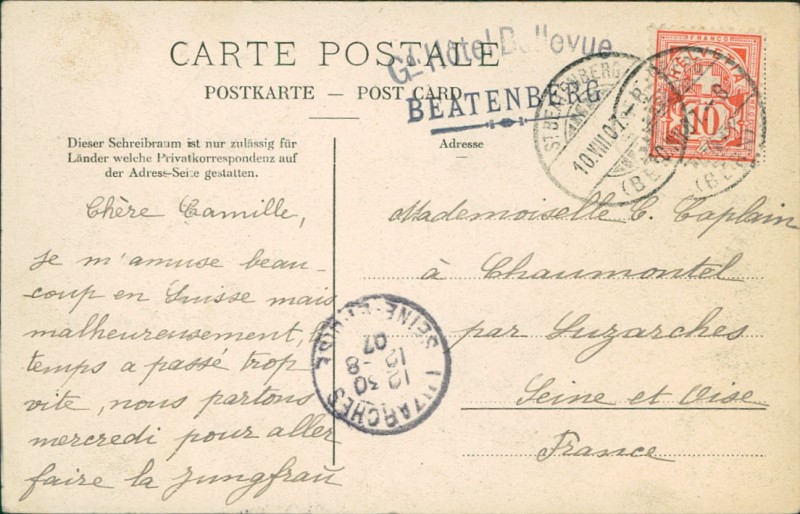 CARTE POSTALE
POSTKARTE — POST CARD
Gd Hôtel Bellevue
BEATENBERG
ST. BEATENBERG
10.VIII.07.
HELVETIA
FRANCO
10
Dieser Schreibraum ist nur zulässig für
Länder welche Privatkorrespondenz auf
der Adress-Seite gestatten.
Adresse
Chère Camille,
je m'amuse beau-
coup en Suisse mais
malheureusement, le
temps a passé trop
vite, nous partons
mercredi pour aller
faire la Jungfrau
Mademoiselle C. Caplain
à Chaumontel
par Luzarches
Seine et Oise
France
LUZARCHES
12 30
12 -8
07
SEINE-ET-OISE